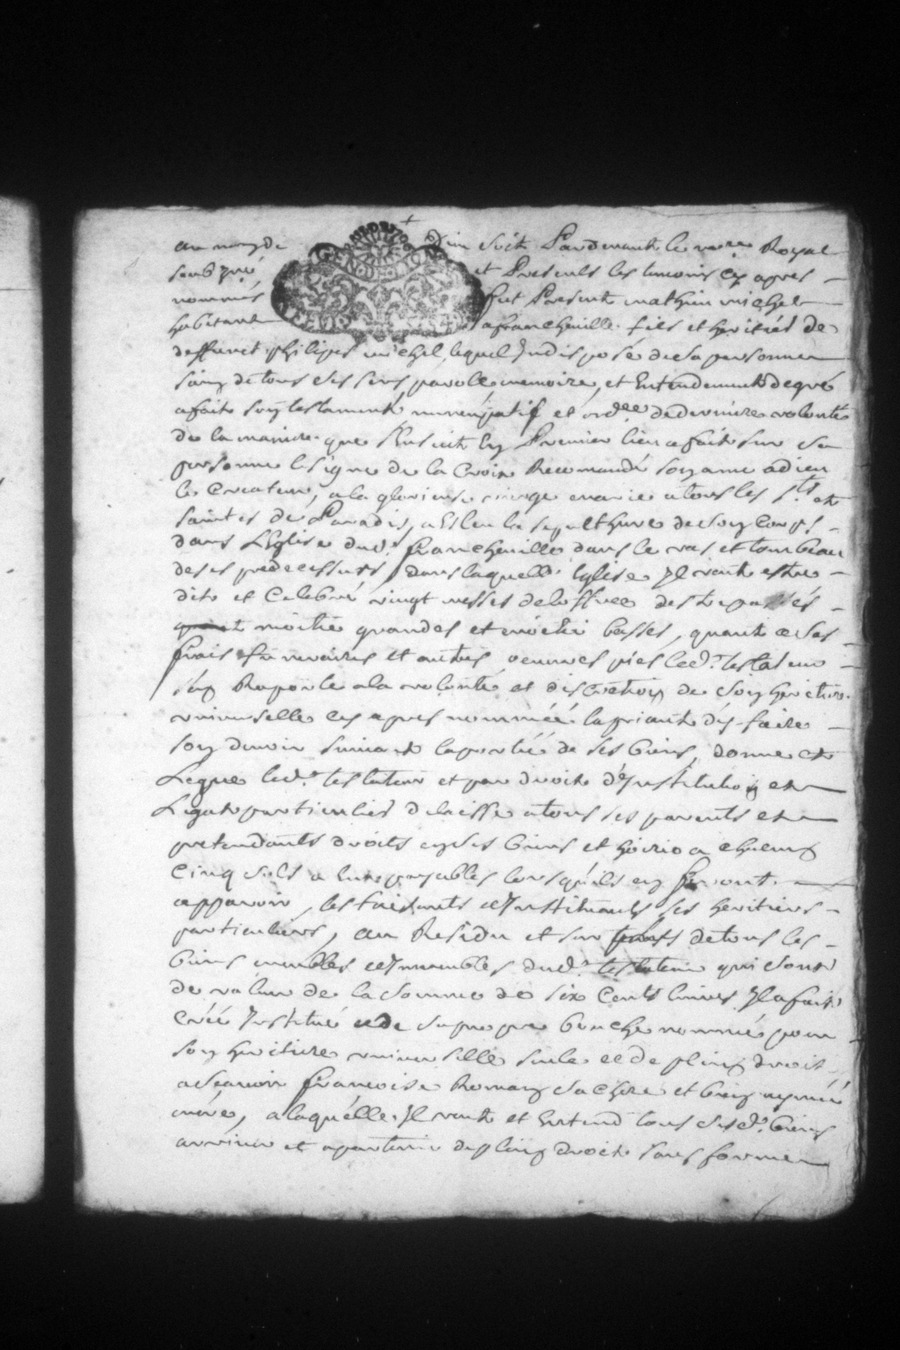 au nom de Dieu soit Pardevant le no.re Royal
soub.né et Presents les temoins cy apres
nommés fut Present mathieu michel
habitant a francheuille fils et heritier de
deffunct philipes michel, lequel Indisposé de sa personne
sain de tous ses sens parolle memoire, et Entendement de gré
a fait son testament nuncupatif et ord.ce de derniere volonté
de la maniere que s'ensuit En Premier lieu a fait sur sa
personne le signe de la Croix Recomandé son ame a dieu
le Createur, a la glorieuse vierge marie a tous les S.ts et
saintes de Paradis, a Esleu la sepulthure de son Corps
dans L'Eglise dud. francheuille dans le vas et tombeau
de ses predecesseurs, dans laquelle Eglise Il veut estre
dits et Celebré vingt messes de l'office des trepassés
moitié grandes et moitié basses, quant a ses
frais funeraires et autres oeuvres pies led. testateur
s'en Raporte a la volonté et discretion de son heritiere
universelle cy apres nommée la priant d'y faire
son devoir suivant la portée de ses biens, donne et
Legue led. testateur et par droit d'Institution et
Legat particulier delaisse a tous ses parents et
pretendants droits en ses biens et hoirie a chacun
Cinq sols a eux payables lorsqu'ils en feront
apparoir, les faisants et Instituants ses heritiers
particuliers, au Residu et sur de tous les
biens meubles et Immeubles dud. testateur qui sont
de valeur de la somme de six Cents livres Il a fait
Créé Institué et de sa propre bouche nommé pour
son heritiere universelle seule et de plein droit
a scavoir francoise Roman sa chere et bien aymée
mère, a laquelle Il veut et Entend tous sesd. biens
arriver et apartenir de plein droit sans former
GEN. DE LYON